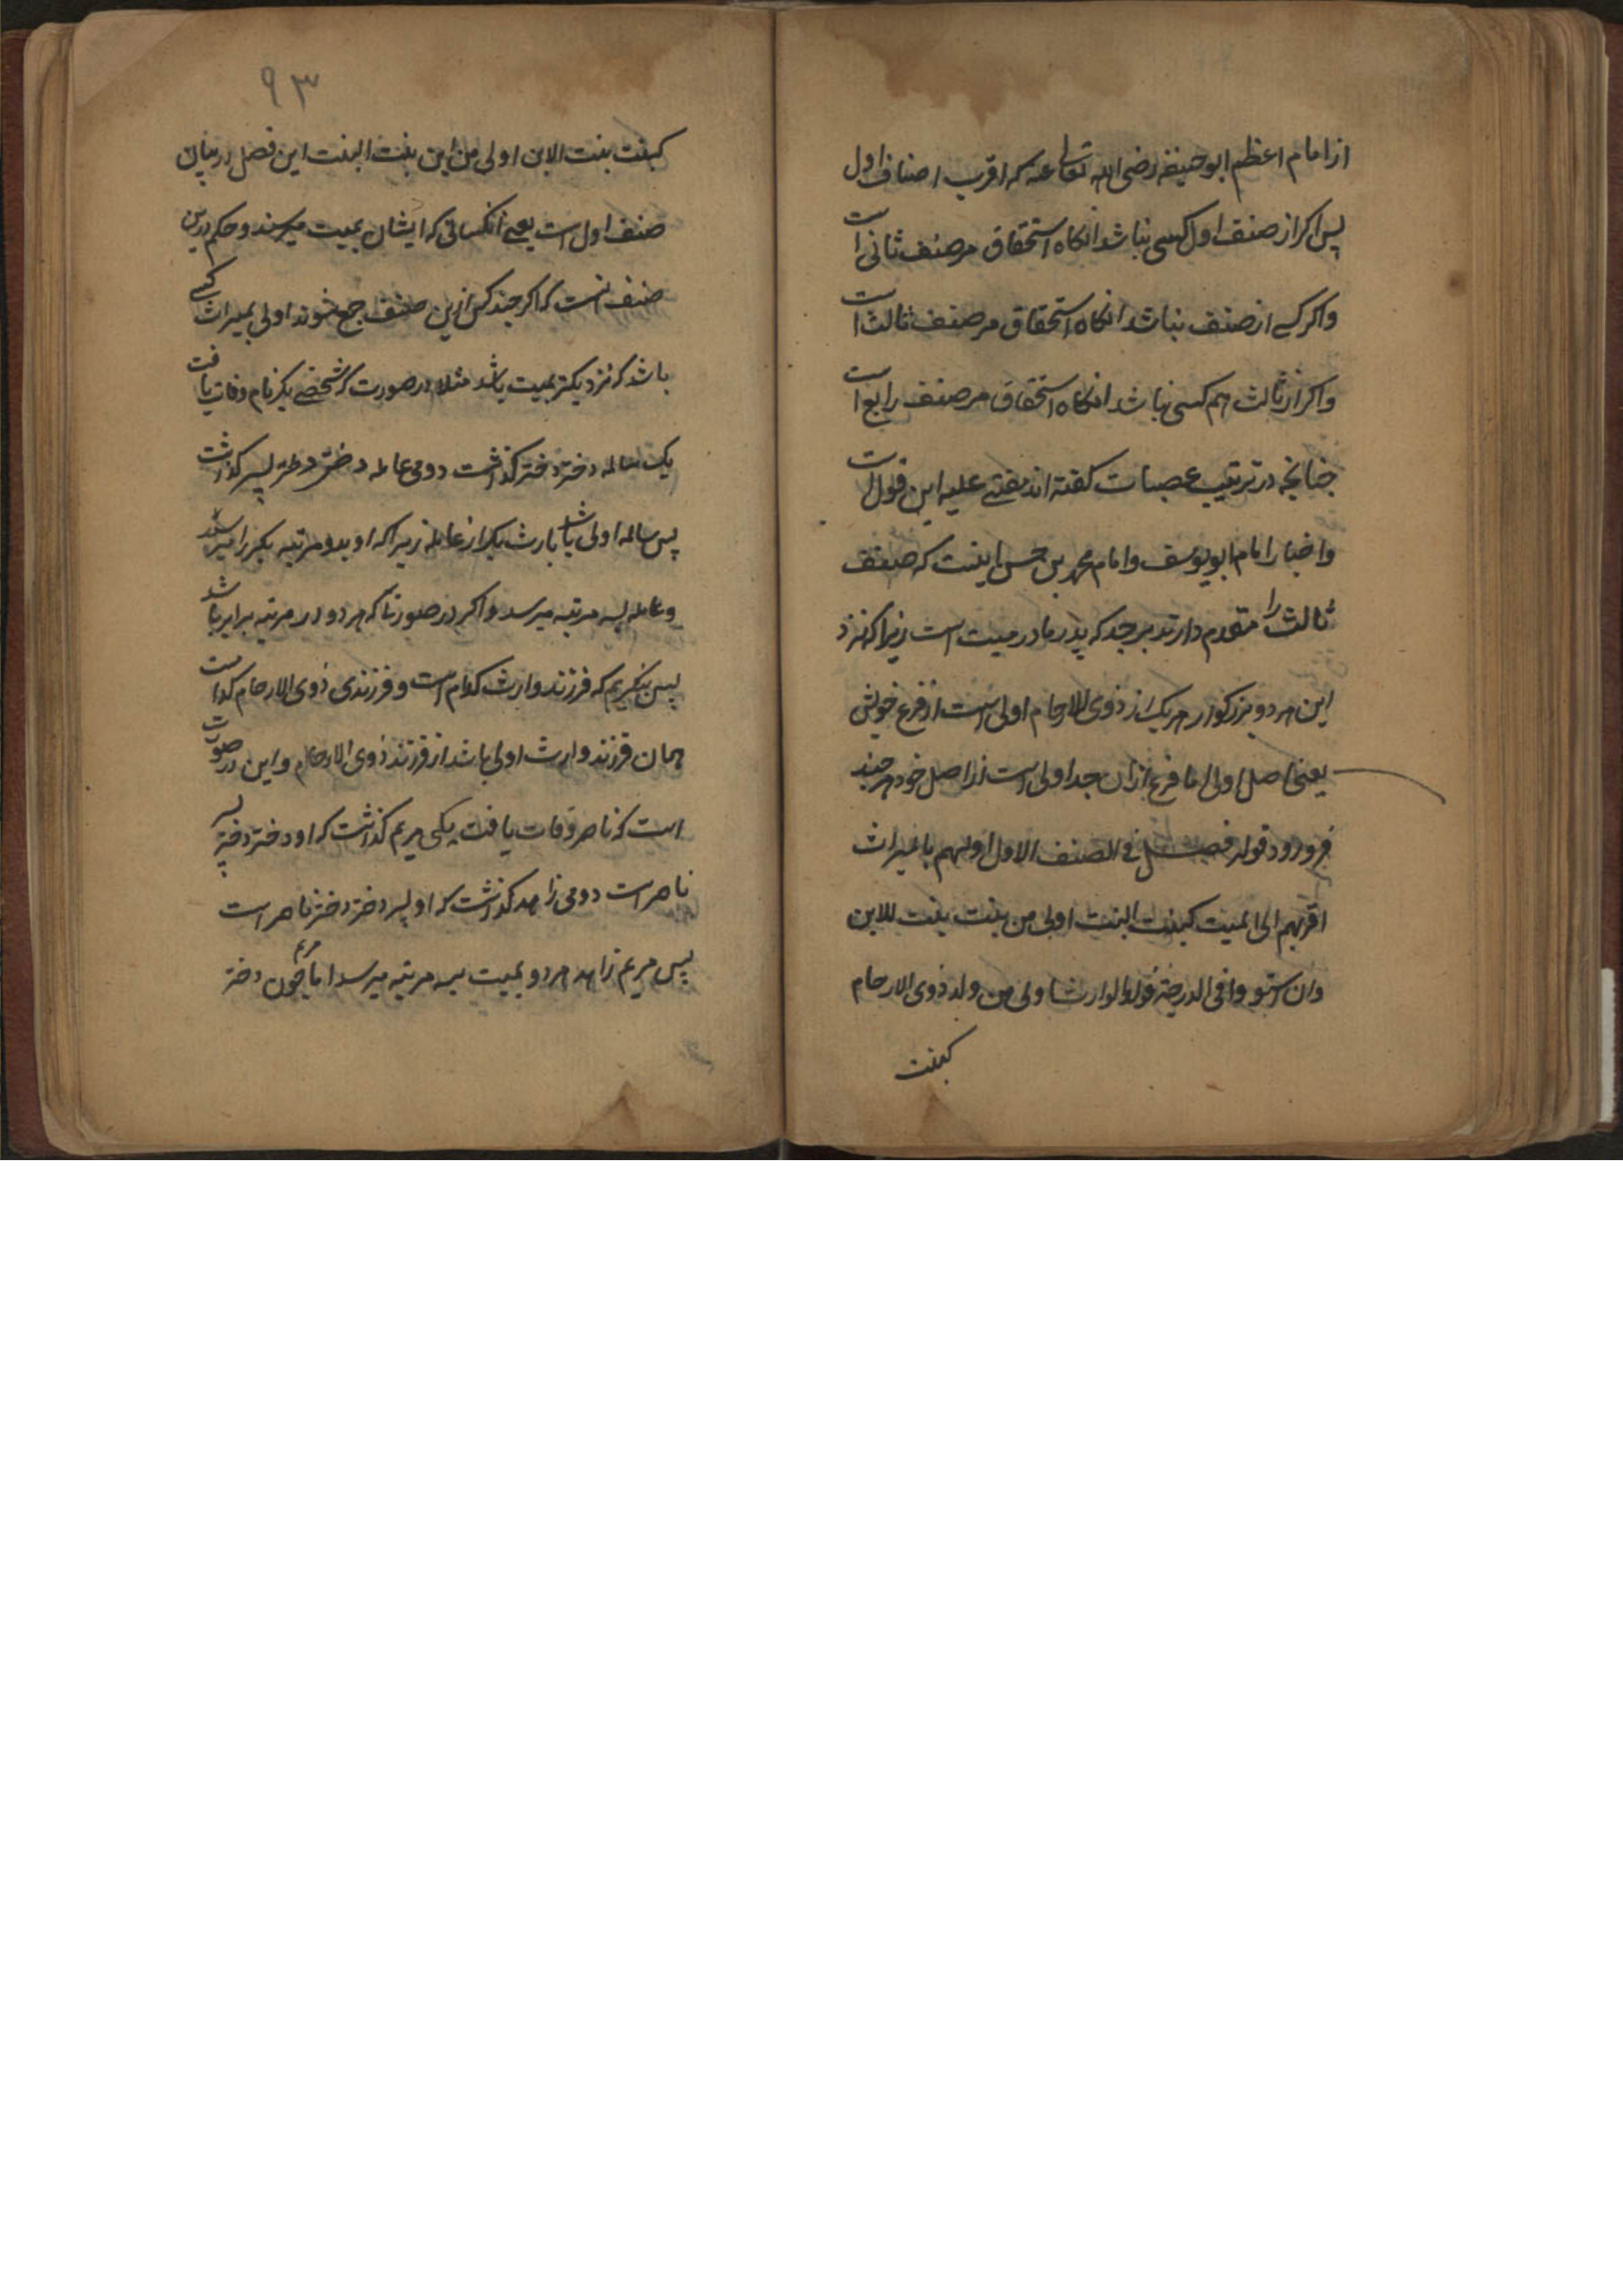 از امام اعظم ابوحنیفه رضی الله تعالی عنه که اقرب اصناف اول
پس اکر از صنف اول کسی نباشد انکاه استحقاق مر صنف ثانی است
واکر کسے از صنف نباشد انکاه استحقاق مر صنف ثالث است
واکر از ثالث هم کسی نباشد انکاه استحقاق مر صنف رابع است
جنانجه در ترتیب عصبات کفته اند مفتے علیه این قول است
واخبار امام ابویوسف وامام محمد بن حسن اینست که صنف
ثالث را متقدم دارند بر جد که پدر مادر میت است زیرا که نزد
این هر دو بزرکوار هریک از ذوی الارحام اولی است از فرع خویش
یعنی اصل اولی اما فرع ازان جد اولی است از اصل خود هرجند
فرو رود قوله فصل فی الصنف الاول اولیهم بالمیراث
اقربهم الی المیت کبنت البنت اولی من بنت بنت الابن
وان استووا فی الدرجة فولد الوارث اولی من ولد ذوی الارحام
کبنت
۹۳
کبنت بنت الابن اولی من ابن بنت البنت این فصل در بیان
صنف اول است یعنے آنکسانی که ایشان بمیت میرسند وحکم درین
صنف انست که اکر جند کس ازین صنف جمع شوند اولی بمیراث کسے
باشد که نزدیکتر بمیت باشد مثلا در صورت که شخصے بکر نام وفات یافت
یک سالمه دختر دختر کذاشت دومی عامله دختر دختر پسر کذاشت
پس سالمه اولی باشد بارث بکر از عامله زیراکه او بدو مرتبه بکر را میرسد
وعامله بسه مرتبه میرسد واکر در صورتا که هر دو در مرتبه برابر باشد
پس بنکریم که فرزند وارث کدام است وفرزندی ذوی الارحام کدام است
همان فرزند وارث اولی باشد از فرزند ذوی الارحام واین در صورت
است که ناصر وفات یافت یکی مریم کذاشت که او دختر دختر پسر
ناصر است دومی زاهد کذاشت که او پسر دختر دختر ناصر است
پس مریم زاهد هر دو بمیت بسه مرتبه میرسد اما جون مریم دختر